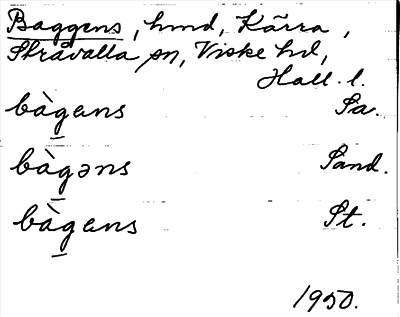 Baggens, hmd, Kärra,
Stråvalla sn, Viske hd,
Hall. l.
bàg̱ens Sa.
bàg̱əns Sand.
bàg̱ens St.
1950.